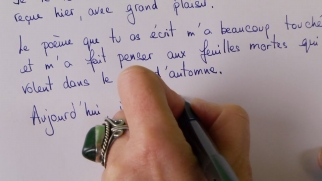 reçue hier, avec grand plaisir.
Le poème que tu as écrit m'a beaucoup touché
et m'a fait penser aux feuilles mortes qui
volent dans le d'automne.
Aujourd'hui